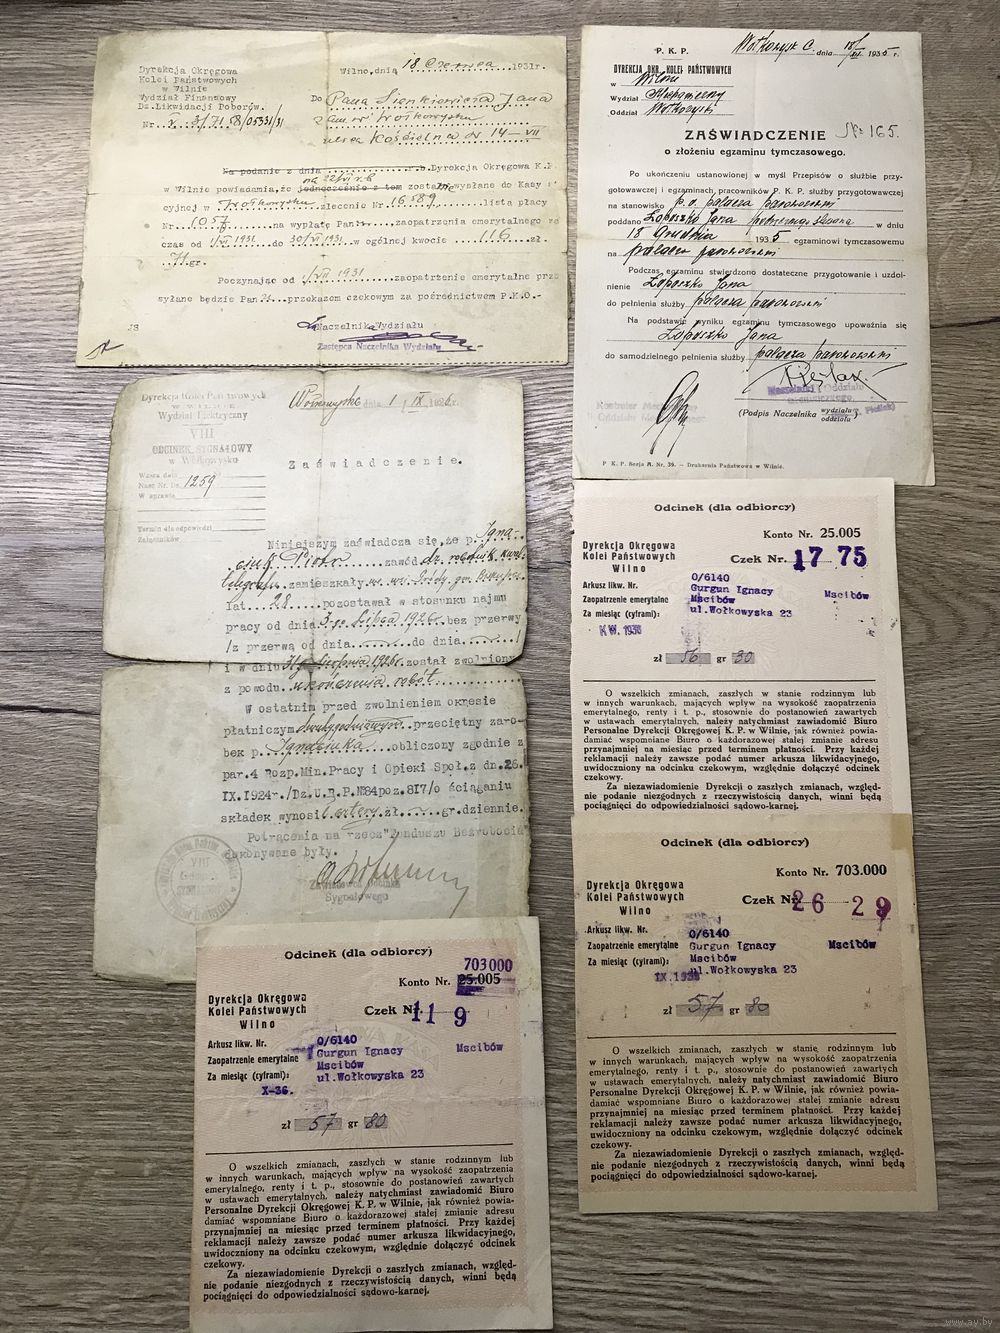 Dyrekcja Okręgowa
Kolei Państwowych
w Wilnie
Wydział Finansowy
Dz.Likwidacji Poborów.
Wilno,dnia 18 Czerwca 1931r.
Do Pana Sienkiewicza Jana
zam. w Wołkowysku
ulica Kościelna nr 14-VII
Na podanie z dnia Dyrekcja Okręgowa K.P.
w Wilnie powiadamia,że jednocześnie z tem zostało wysłane do Kasy
cyjnej w Wołkowysku zlecenie Nr. 16589 lista płacy
Nr. 1057 na wypłatę Panu zaopatrzenia emerytalnego za
czas od 1/VI 1931 do 30/VI 1931 w ogólnej kwocie 116 zł
71 gr.
Poczynając od 1/VII 1931 zaopatrzenie emerytalne prze
syłane będzie Panu przekazem czekowym za pośrednictwem P.K.O.-
Naczelnika Wydziału
Zastępca Naczelnika Wydziału
JS
P. K. P.
Wołkowysk C. dnia 18/XII 1935 r.
DYREKCJA OKR. KOLEI PAŃSTWOWYCH
w Wilnie
Wydział Mechaniczny
Oddział Wołkowysk
ZAŚWIADCZENIE № 165.
o złożeniu egzaminu tymczasowego.
Po ukończeniu ustanowionej w myśl Przepisów o służbie przy-
gotowawczej i egzaminach, pracowników P. K. P. służby przygotowawczej
na stanowisko p.o. palacza parowozowni
poddano Łoposzko Jana w dniu
18 Grudnia 1935 egzaminowi tymczasowemu
na palacza parowozowni
Podczas egzaminu stwierdzono dostateczne przygotowanie i uzdol-
nienie Łoposzko Jana
do pełnienia służby palacza parowozowni
Na podstawie wyniku egzaminu tymczasowego upoważnia się
Łoposzko Jana
do samodzielnego pełnienia służby palacza parowozowni
(Podpis Naczelnika wydziału
oddziału)
P. K. P. Serja M. Nr. 39. – Drukarnia Państwowa w Wilnie.
Dyrekcja Kolei Państwowych
w WILNIE
Wydział Elektryczny
VIII
ODCINEK SYGNAŁOWY
w Wołkowysku
dnia 1/IX 1926 r.
Nasz Nr. Dz. 1259
W sprawie
Termin dla odpowiedzi
Załączników
Zaświadczenie.
Niniejszym zaświadcza się,że p. Igna-
ciuk Piotr zawód dz. robotnik
telegrafu zamieszkały
lat 28 pozostawał w stosunku najmu
pracy od dnia 3-go Lipca 1926 bez przerwy
/z przerwą od dnia do dnia /
i w dniu 31 Sierpnia 1926r został zwolniony
z powodu ukończenia robót
W ostatnim przed zwolnieniem okresie
płatniczym dwutygodniowym przeciętny zaro-
bek p. Ignaciuka obliczony zgodnie z
par.4 Rozp.Min.Pracy i Opieki Społ.z dn.26.
IX.1924r./Dz.U.R.P.№84poz.817/o ściąganiu
składek wynosił cztery zł. gr.dziennie.
Potrącenia na rzecz "Funduszu Bezrobocia"
dokonywane były.
Zawiadowca Odcinka
Sygnałowego
Odcinek (dla odbiorcy)
Konto Nr. 25.005
Dyrekcja Okręgowa
Kolei Państwowych
Wilno
Czek Nr. 17 75
Arkusz likw. Nr. 0/6140
Zaopatrzenie emerytalne Gurgun Ignacy Mscibów
Za miesiąc (cyframi): Mscibów
ul.Wołkowyska 23
zł 56 gr 30
O wszelkich zmianach, zaszłych w stanie rodzinnym lub
w innych warunkach, mających wpływ na wysokość zaopatrzenia
emerytalnego, renty i t. p., stosownie do postanowień zawartych
w ustawach emerytalnych, należy natychmiast zawiadomić Biuro
Personalne Dyrekcji Okręgowej K. P. w Wilnie, jak również powia-
damiać wspomniane Biuro o każdorazowej stałej zmianie adresu
przynajmniej na miesiąc przed terminem płatności. Przy każdej
reklamacji należy zawsze podać numer arkusza likwidacyjnego,
uwidoczniony na odcinku czekowym, względnie dołączyć odcinek
czekowy.
Za niezawiadomienie Dyrekcji o zaszłych zmianach, względ-
nie podanie niezgodnych z rzeczywistością danych, winni będą
pociągnięci do odpowiedzialności sądowo-karnej.
Odcinek (dla odbiorcy)
Konto Nr. 703.000
Dyrekcja Okręgowa
Kolei Państwowych
Wilno
Czek Nr. 26 29
Arkusz likw. Nr. 0/6140
Zaopatrzenie emerytalne Gurgun Ignacy Mscibów
Za miesiąc (cyframi): Mscibów
IX.1936 ul.Wołkowyska 23
zł 57 gr 80
O wszelkich zmianach, zaszłych w stanie rodzinnym lub
w innych warunkach, mających wpływ na wysokość zaopatrzenia
emerytalnego, renty i t. p., stosownie do postanowień zawartych
w ustawach emerytalnych, należy natychmiast zawiadomić Biuro
Personalne Dyrekcji Okręgowej K. P. w Wilnie, jak również powia-
damiać wspomniane Biuro o każdorazowej stałej zmianie adresu
przynajmniej na miesiąc przed terminem płatności. Przy każdej
reklamacji należy zawsze podać numer arkusza likwidacyjnego,
uwidoczniony na odcinku czekowym, względnie dołączyć odcinek
czekowy.
Za niezawiadomienie Dyrekcji o zaszłych zmianach, względ-
nie podanie niezgodnych z rzeczywistością danych, winni będą
pociągnięci do odpowiedzialności sądowo-karnej.
Odcinek (dla odbiorcy)
703000
Konto Nr. 25.005
Dyrekcja Okręgowa
Kolei Państwowych
Wilno
Czek Nr. 11 9
Arkusz likw. Nr. 0/6140
Zaopatrzenie emerytalne Gurgun Ignacy Mscibów
Za miesiąc (cyframi): Mscibów
X-36. ul.Wołkowyska 23
zł 57 gr 80
O wszelkich zmianach, zaszłych w stanie rodzinnym lub
w innych warunkach, mających wpływ na wysokość zaopatrzenia
emerytalnego, renty i t. p., stosownie do postanowień zawartych
w ustawach emerytalnych, należy natychmiast zawiadomić Biuro
Personalne Dyrekcji Okręgowej K. P. w Wilnie, jak również powia-
damiać wspomniane Biuro o każdorazowej stałej zmianie adresu
przynajmniej na miesiąc przed terminem płatności. Przy każdej
reklamacji należy zawsze podać numer arkusza likwidacyjnego,
uwidoczniony na odcinku czekowym, względnie dołączyć odcinek
czekowy.
Za niezawiadomienie Dyrekcji o zaszłych zmianach, względ-
nie podanie niezgodnych z rzeczywistością danych, winni będą
pociągnięci do odpowiedzialności sądowo-karnej.
www.ay.by